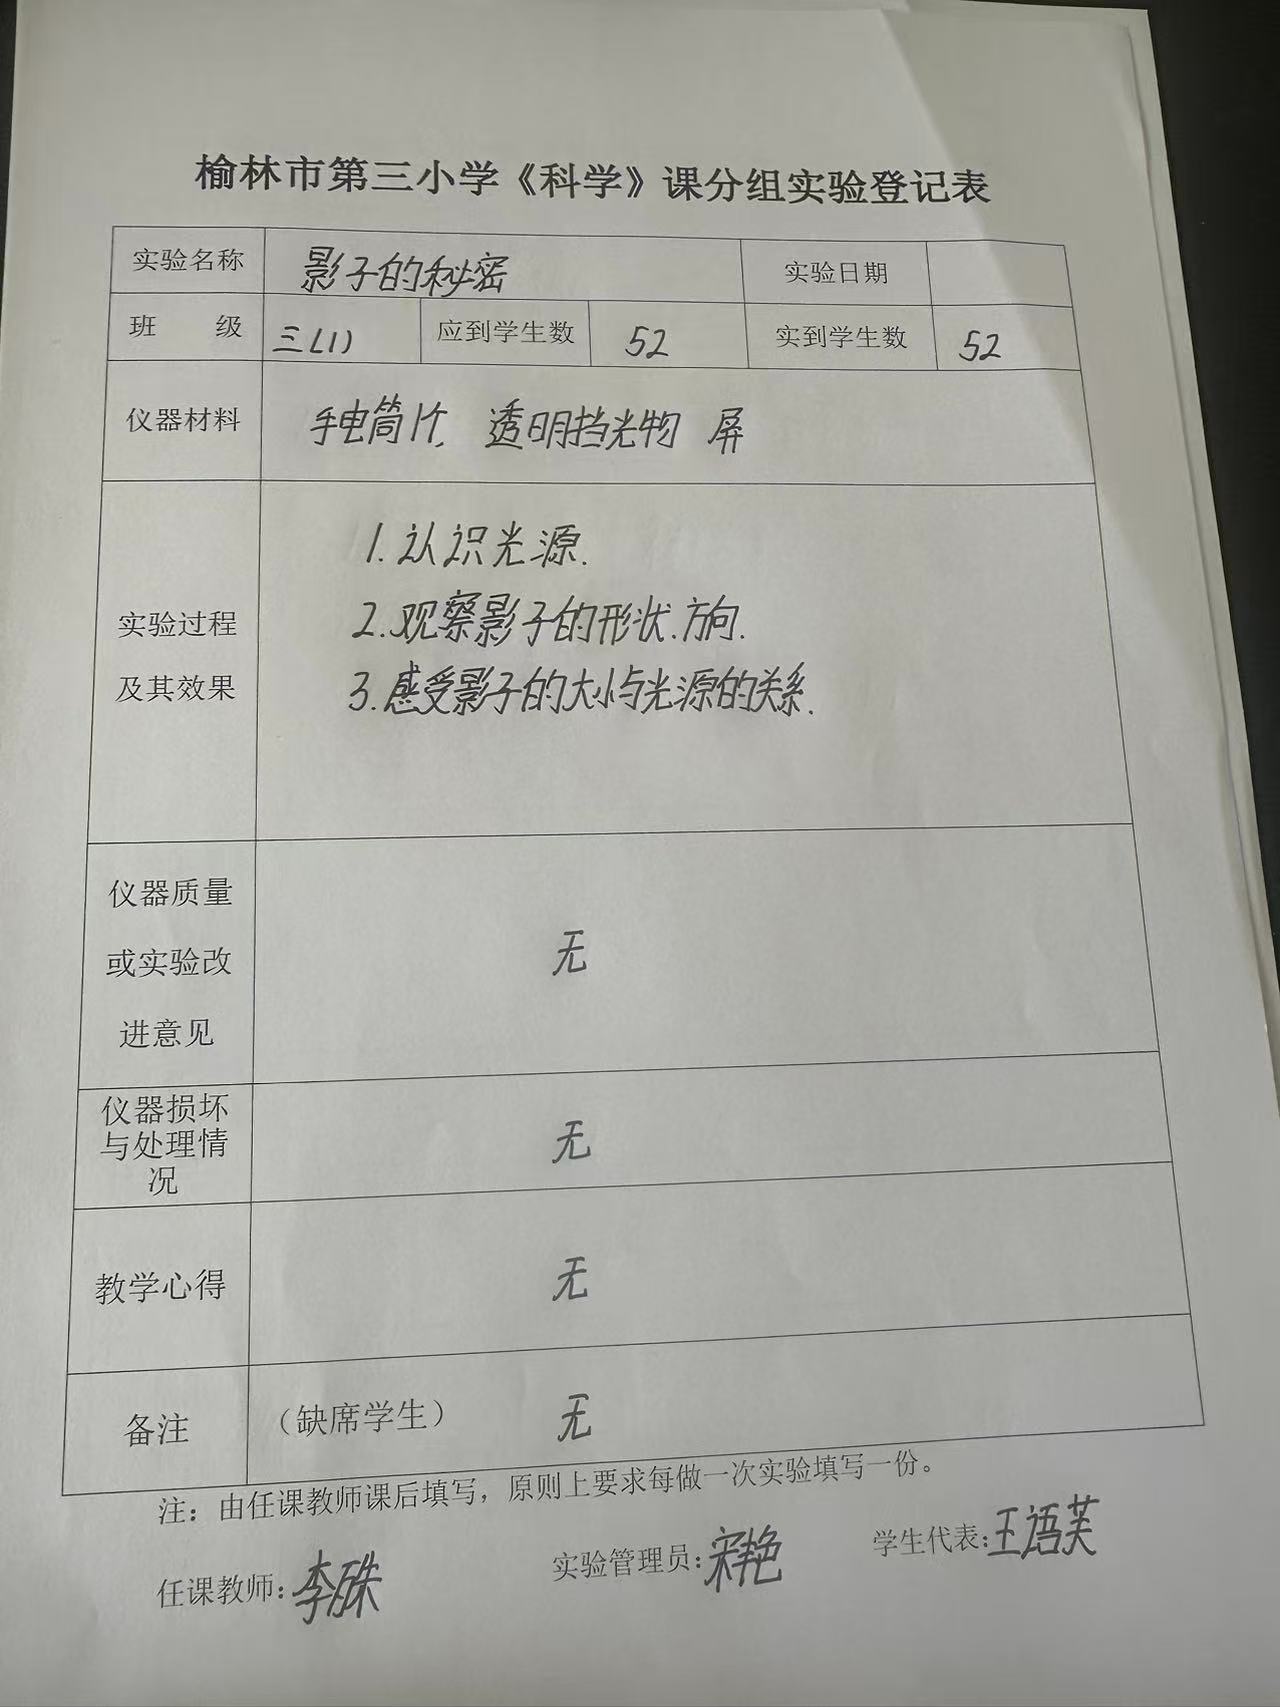 榆林市第三小学《科学》课分组实验登记表
实验名称 影子的秘密 实验日期
班 级 三(1) 应到学生数 52 实到学生数 52
仪器材料 手电筒1个, 透明挡光物 屏
1.认识光源.
2.观察影子的形状.方向.
实验过程
及其效果
3.感受影子的大小与光源的关系.
仪器质量
或实验改
进意见
无
仪器损坏
与处理情
况
无
教学心得 无
备注 (缺席学生) 无
注：由任课教师课后填写，原则上要求每做一次实验填写一份。
任课教师:李 实验管理员:宋艳 学生代表:王语芙